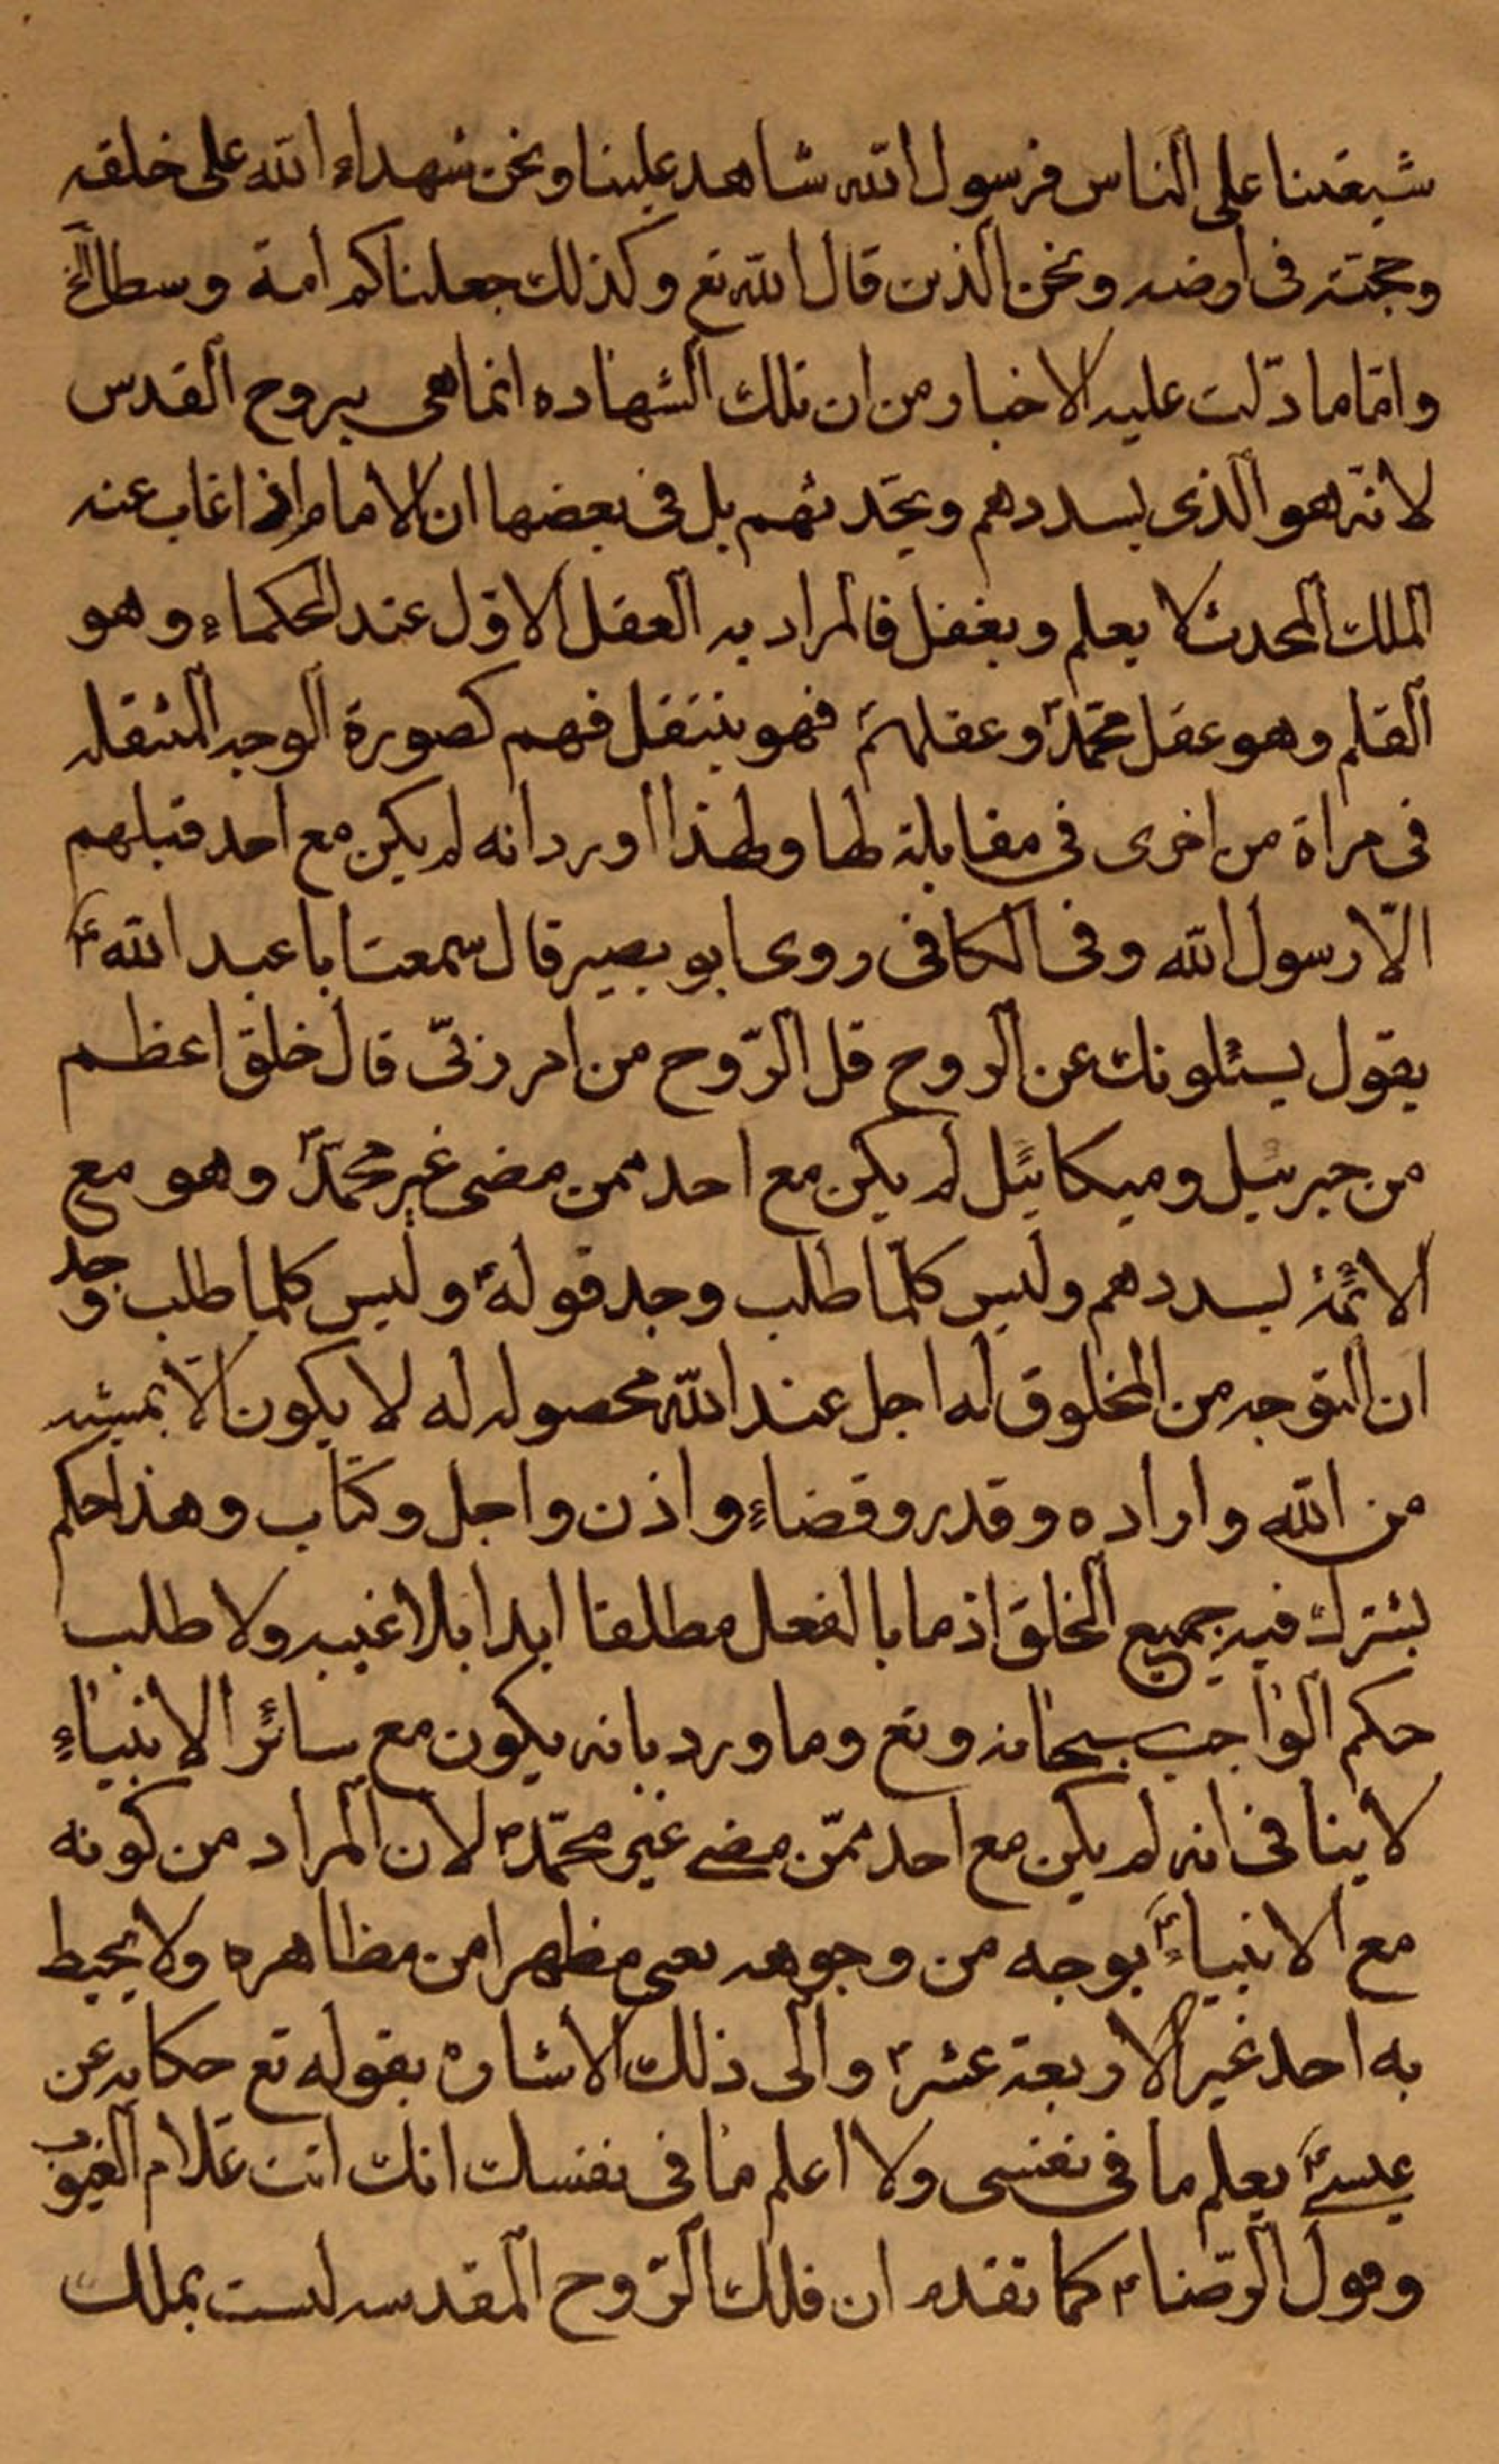 شيعتنا على الناس فرسول الله شاهد علينا ونحن شهداء الله على خلقه
وحجته فى ارضه ونحن الذين قال الله تع وكذلك جعلناكم امة وسطا الخ
وامّا ما دلّت عليه الاخبار من ان تلك الشهاده انما هى بروح القدس
لانّه هو الذى يسددهم ويحّدثهم بل فى بعضها ان الامام اذا غاب عنه
الملك المحدث لا يعلم ويغفل فالمراد به العقل الاوّل عند الحكماء وهو
القلم وهو عقل محمّد ص وعقلهم فهو ينتقل فهم كصورة الوجه المنتقله
فى مراة من اخرى فى مقابلة لها ولهذا اورد انه لم يكن مع احد قبلهم
الّا رسول الله وفى الكافى روى ابو بصير قال سمعت ابا عبد الله ع
يقول يسئلونك عن الروح قل الرّوح من امر ربّى قال خلق اعظم
من جبرئيل وميكائيل لم يكن مع احد ممن مضى غير محمّد ص وهو مع
الائمّة يسددهم وليس كلّما طلب وجد قوله ع وليس كلما طلب وجد
ان التوجه من المخلوق له اجل عند الله محصوله له لا يكون الّا بمشيه
من الله واراده وقدر وقضاء واذن واجل وكتاب وهذا حكم
يشترك فيه جميع الخلق اذ ما بالفعل مطلقا ابدا بلا غيبه ولا طلب
حكم الواجب سبحانه وتع وما ورد بانه يكون مع سائر الانبياء
لا ينافى انه لم يكن مع احد ممّن مضى غير محمّد ص لان المراد من كونه
مع الانبياء ع بوجه من وجوهه يعنى مظهرا من مظاهره ولا يحيط
به احد غير الاربعة عشر ع والى ذلك الاشاره بقوله تع حكايه عن
عيسى ع يعلم ما فى نفسى ولا اعلم ما فى نفسك انك انت علام الغيوب
وقول الرّضا ع كما تقدم ان فلك الرّوح المقدسه ليست بملك